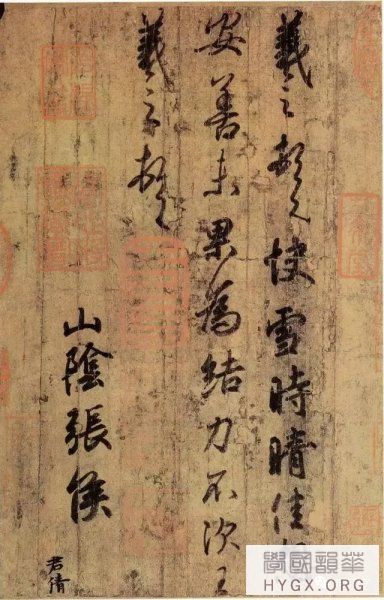 羲之頓首快雪時晴佳
安善未果為結力不次王
羲之頓首
山陰張侯
君倩
學國韻華
HYGX.ORG